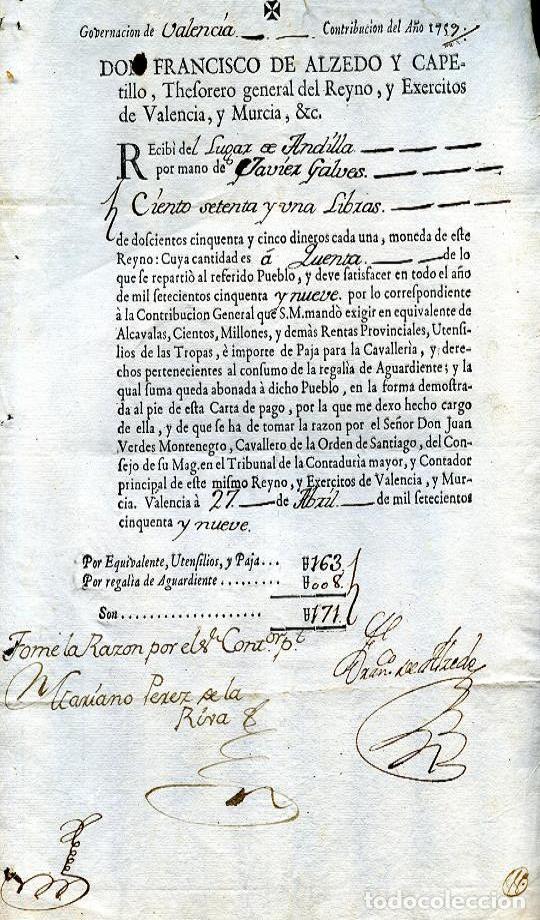 Governacion de Valencia Contribucion del Año 1759
DON FRANCISCO DE ALZEDO Y CAPE-
tillo, Thesorero general del Reyno, y Exercitos
de Valencia, y Murcia, &c.
REcibì del Lugar de Andilla
por mano de Javier Galves.
Ciento setenta y una Libras.
de doscientos cinquenta y cinco dineros cada una, moneda de este
Reyno: Cuya cantidad es á Quenta de lo
que se repartiò al referido Pueblo, y deve satisfacer en todo el año
de mil setecientos cinquenta y nueve. por lo correspondiente
à la Contribucion General que S.M. mandò exigir en equivalente de
Alcavalas, Cientos, Millones, y demàs Rentas Provinciales, Utensi-
lios de las Tropas, è importe de Paja para la Cavallerìa, y dere-
chos pertenecientes al consumo de la regalìa de Aguardiente; y la
qual suma queda abonada à dicho Pueblo, en la forma demostra-
da al pie de esta Carta de pago, por la que me dexo hecho cargo
de ella, y de que se ha de tomar la razon por el Señor Don Juan
Verdes Montenegro, Cavallero de la Orden de Santiago, del Con-
sejo de su Mag. en el Tribunal de la Contadurìa mayor, y Contador
principal de este mismo Reyno, y Exercitos de Valencia, y Mur-
cia. Valencia à 27 de Abril de mil setecientos
cinquenta y nueve.
Por Equivalente, Utensilios, y Paja... 163
Por regalìa de Aguardiente......... 008
Son.................... 171
Tomè la Razon por el Sr Contor pl
Franco de Alzedo
Mariano Perez de la
Riva
todocoleccion